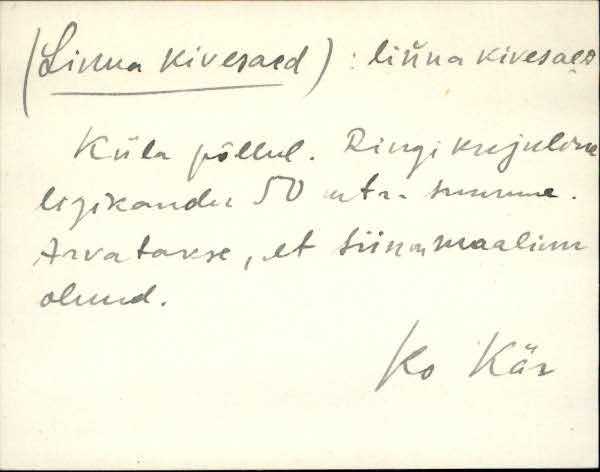 (Linna kivesaed) : liǹna kivesaed
Küla põllul. Ringikujuline
ligikaudu 50 mtr. suurune.
Arvatakse, et siin on maalinn
olnud.
Ko Kär